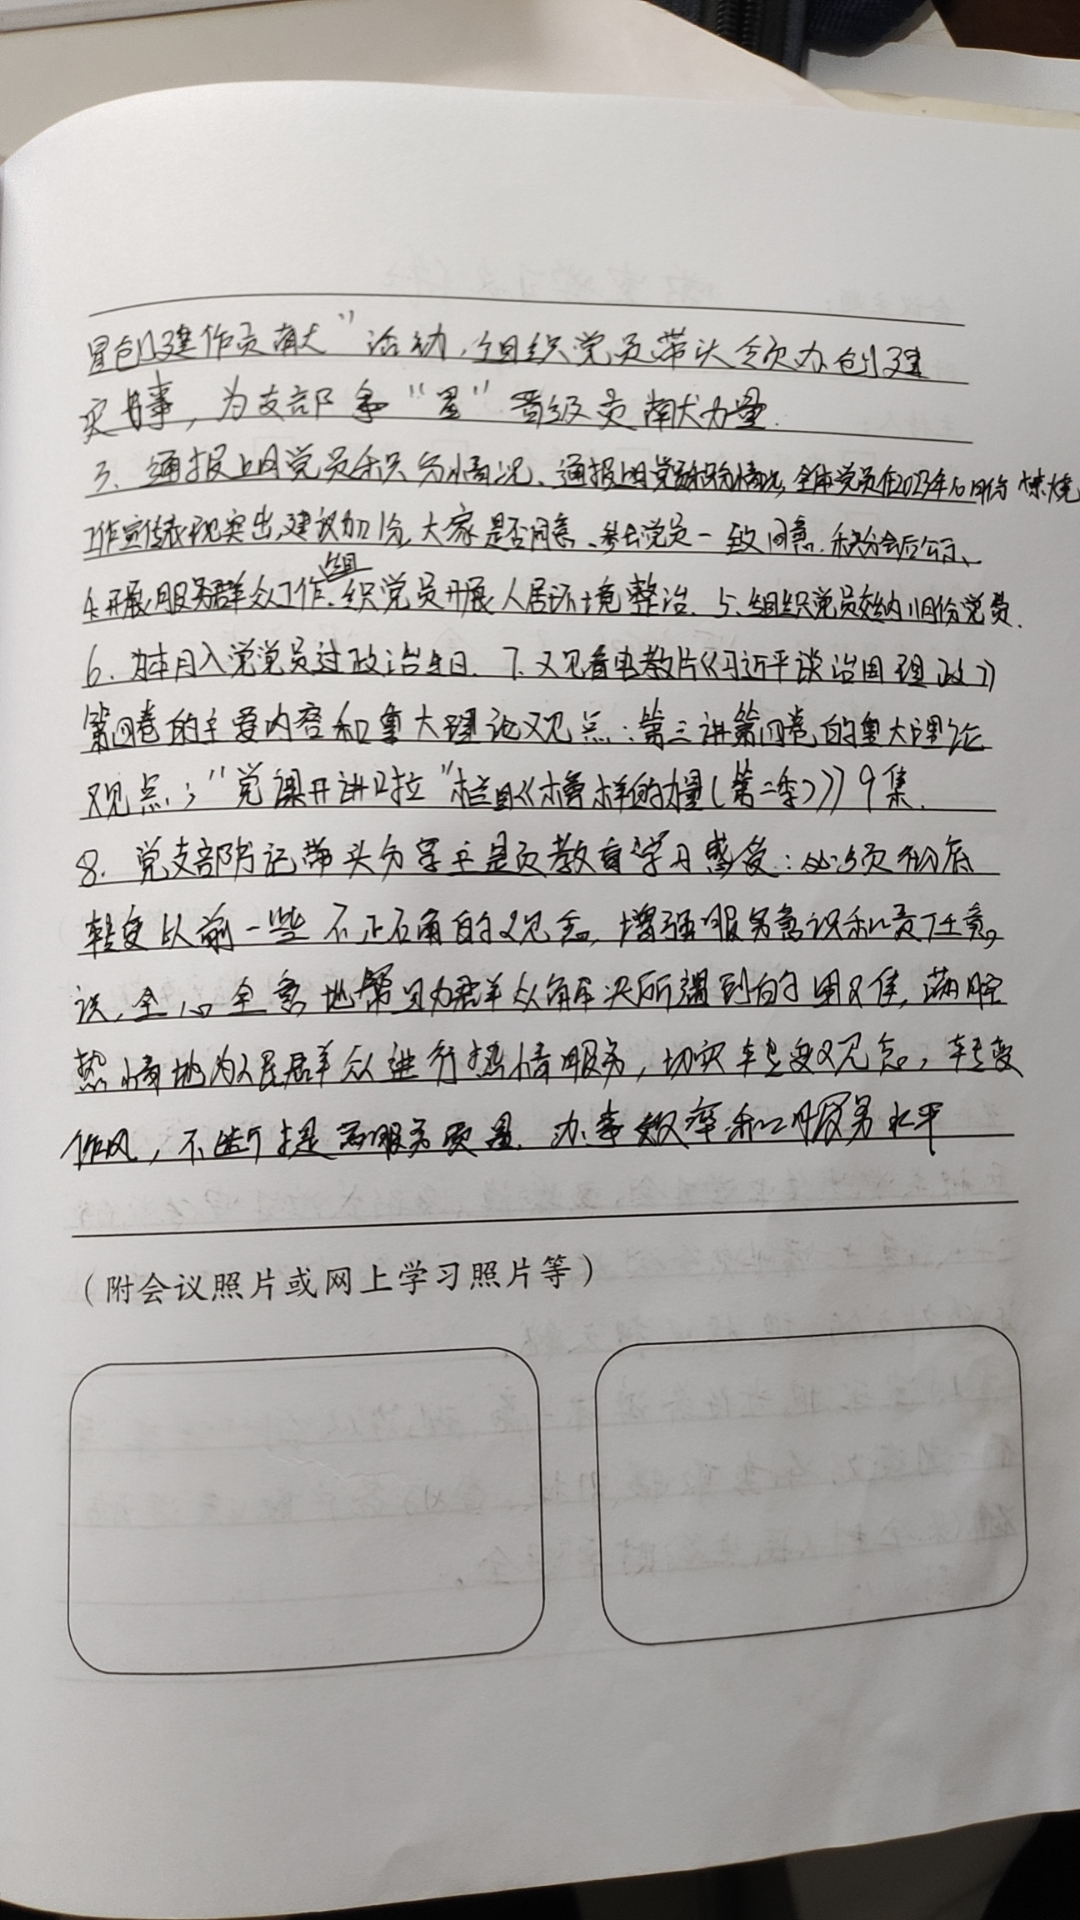 星创建作贡献”活动，组织党员带头领办创建
实事，为支部争“星”晋级贡献力量.
3、通报上月党员积分情况、通报上月党员积分情况，全体党员在2023年10月份禁烧
工作宣传表现突出，建议加1分，大家是否同意、参会党员一致同意.积分会后公示、
4.开展服务群众工作、组织党员开展人居环境整治. 5、组织党员交纳11月份党费.
6、为本月入党党员过政治生日. 7.观看电教片《习近平谈治国理政》
第四卷的主要内容和重大理论观点：第三讲第四卷的重大理论
观点；“党课开讲啦”栏目《榜样的力量(第二季)》9集.
8.党支部书记带头分享主题教育学习感受：必须彻底
转变以前一些不正确的观念，增强服务意识和责任意
识，全心全意地帮助群众解决所遇到的困难，满腔
热情地为人民群众进行热情服务，切实转变观念，转变
作风，不断提高服务质量、办事效率和服务水平
（附会议照片或网上学习照片等）